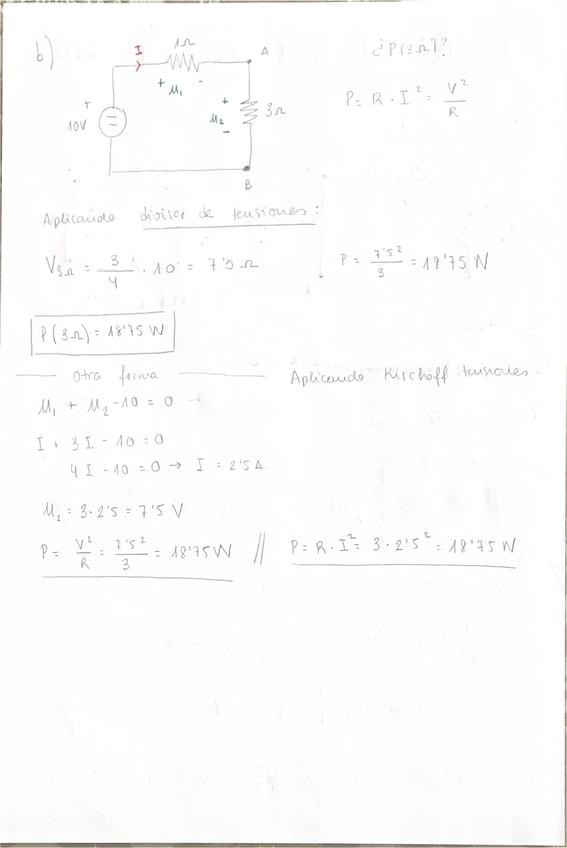 b)
I
1Ω
A
¿P(3Ω)?
+ u₁ -
+
10V
+
u₂
-
3Ω
B
P = R · I² = V²/R
Aplicando divisor de tensiones:
V3Ω = 3/4 · 10 = 7'5 Ω
P = 7'5²/3 = 18'75 W
P(3Ω) = 18'75 W
Otra forma
Aplicando Kirchoff tensiones.
u₁ + u₂ - 10 = 0
I + 3I - 10 = 0
4I - 10 = 0 → I = 2'5 A.
u₂ = 3·2'5 = 7'5 V
P = V²/R = 7'5²/3 = 18'75 W // P = R·I² = 3·2'5² = 18'75 W